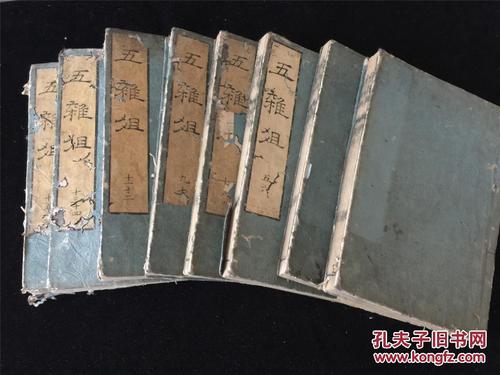 五雜俎
五雜俎
十三十四
五雜俎
十一十二
五雜俎
九之十
五雜俎
五雜俎
孔夫子旧书网
www.kongfz.com